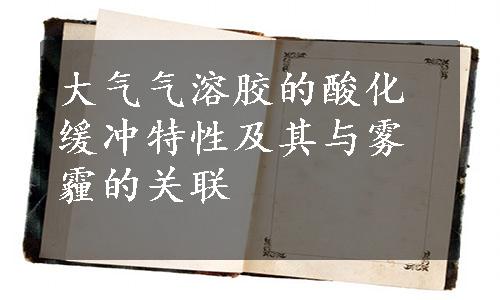 大气气溶胶的酸化
缓冲特性及其与雾
霾的关联